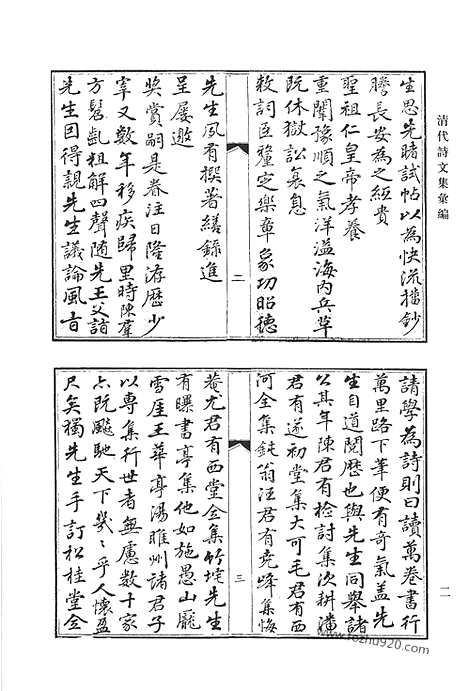 清代詩文集彙編
生思先睹試帖以為快流播鈔
騰長安為之紙貴
聖祖仁皇帝孝養
重闈豫順之氣洋溢海内兵革
既休獄訟衰息
敕詞臣釐定樂章象功昭德
二
先生夙有撰著繕錄進
呈屢邀
奖賞嗣是眷注日隆游歷少
宰又數年移疾歸里時陳羣
方髫齓粗解四聲随先王父詣
先生因得親先生議論風旨
請學為詩則曰讀萬卷書行
萬里路下筆便有奇氣蓋先
生自道閱歷也與先生同舉諸
公其年陳君有檢討集次耕潘
君有遂初堂集大可毛君有西
河全集鈍翁汪君有堯峰集悔
三
菴尤君有西堂全集竹垞先生
有曝書亭集他如施愚山龎
雪厓王華亭湯睢州諸君子
以專集行世者無慮數十家
亦既飈馳天下幾幾乎人懷盈
尺矣獨先生手訂松桂堂全
二
www.fozhu920.com